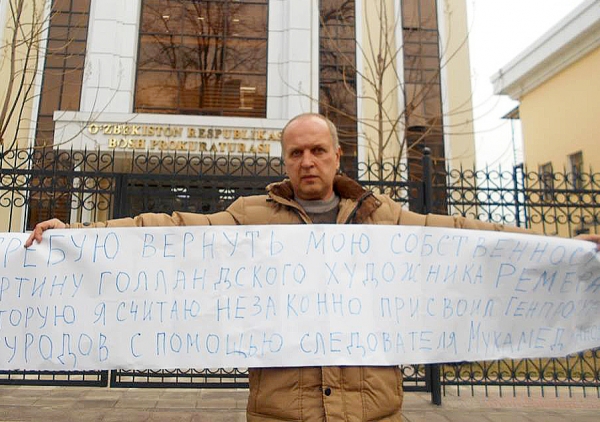 O'ZBEKISTON RESPUBLIKASI
BOSH PROKURATURASI
ТРЕБУЮ ВЕРНУТЬ МОЮ СОБСТВЕННОС
РТИНУ ГОЛЛАНДСКОГО ХУДОЖНИКА
ТОРУЮ Я СЧИТАЮ НЕЗАКОННО ПРИСВОИЛ ГЕНПРО
УРОДОВ С ПОМОЩЬЮ СЛЕДОВАТЕЛЯ МУХАМЕД